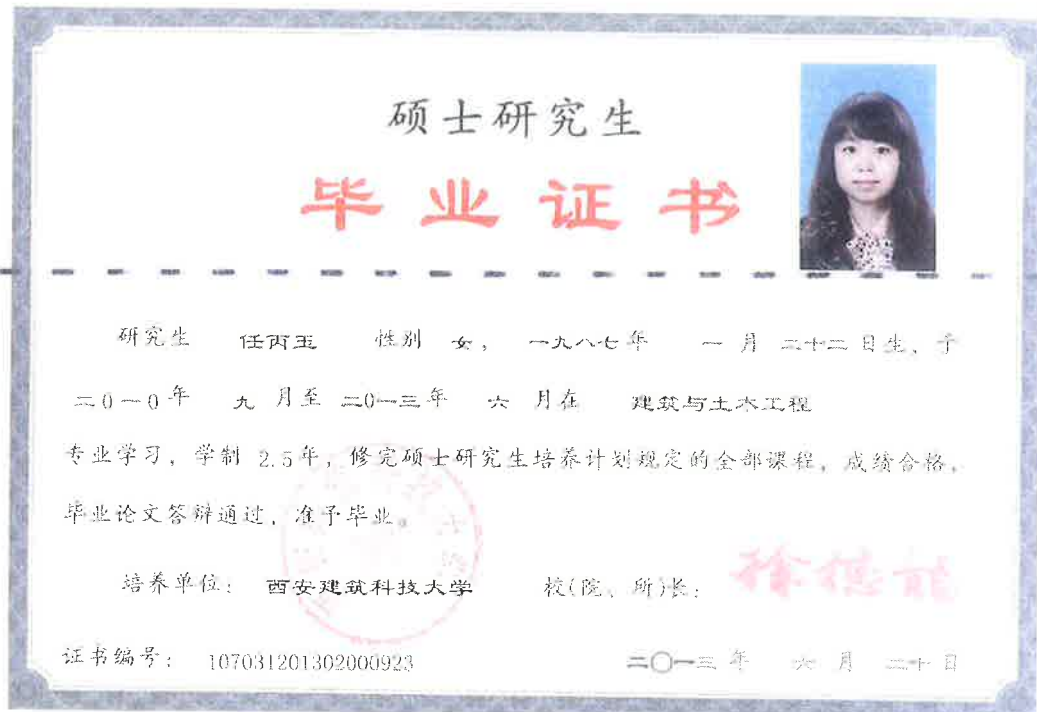 硕士研究生
毕业证书
研究生 任丙玉 性别 女， 一九八七年 一 月 二十二 日生，于
二0一0年 九 月至 二0一三年 六 月在 建筑与土木工程
专业学习，学制 2.5年，修完硕士研究生培养计划规定的全部课程，成绩合格，
毕业论文答辩通过，准予毕业。
培养单位： 西安建筑科技大学 校(院、所)长： 徐德龍
证书编号： 107031201302000923 二〇一三 年 六 月 二十 日